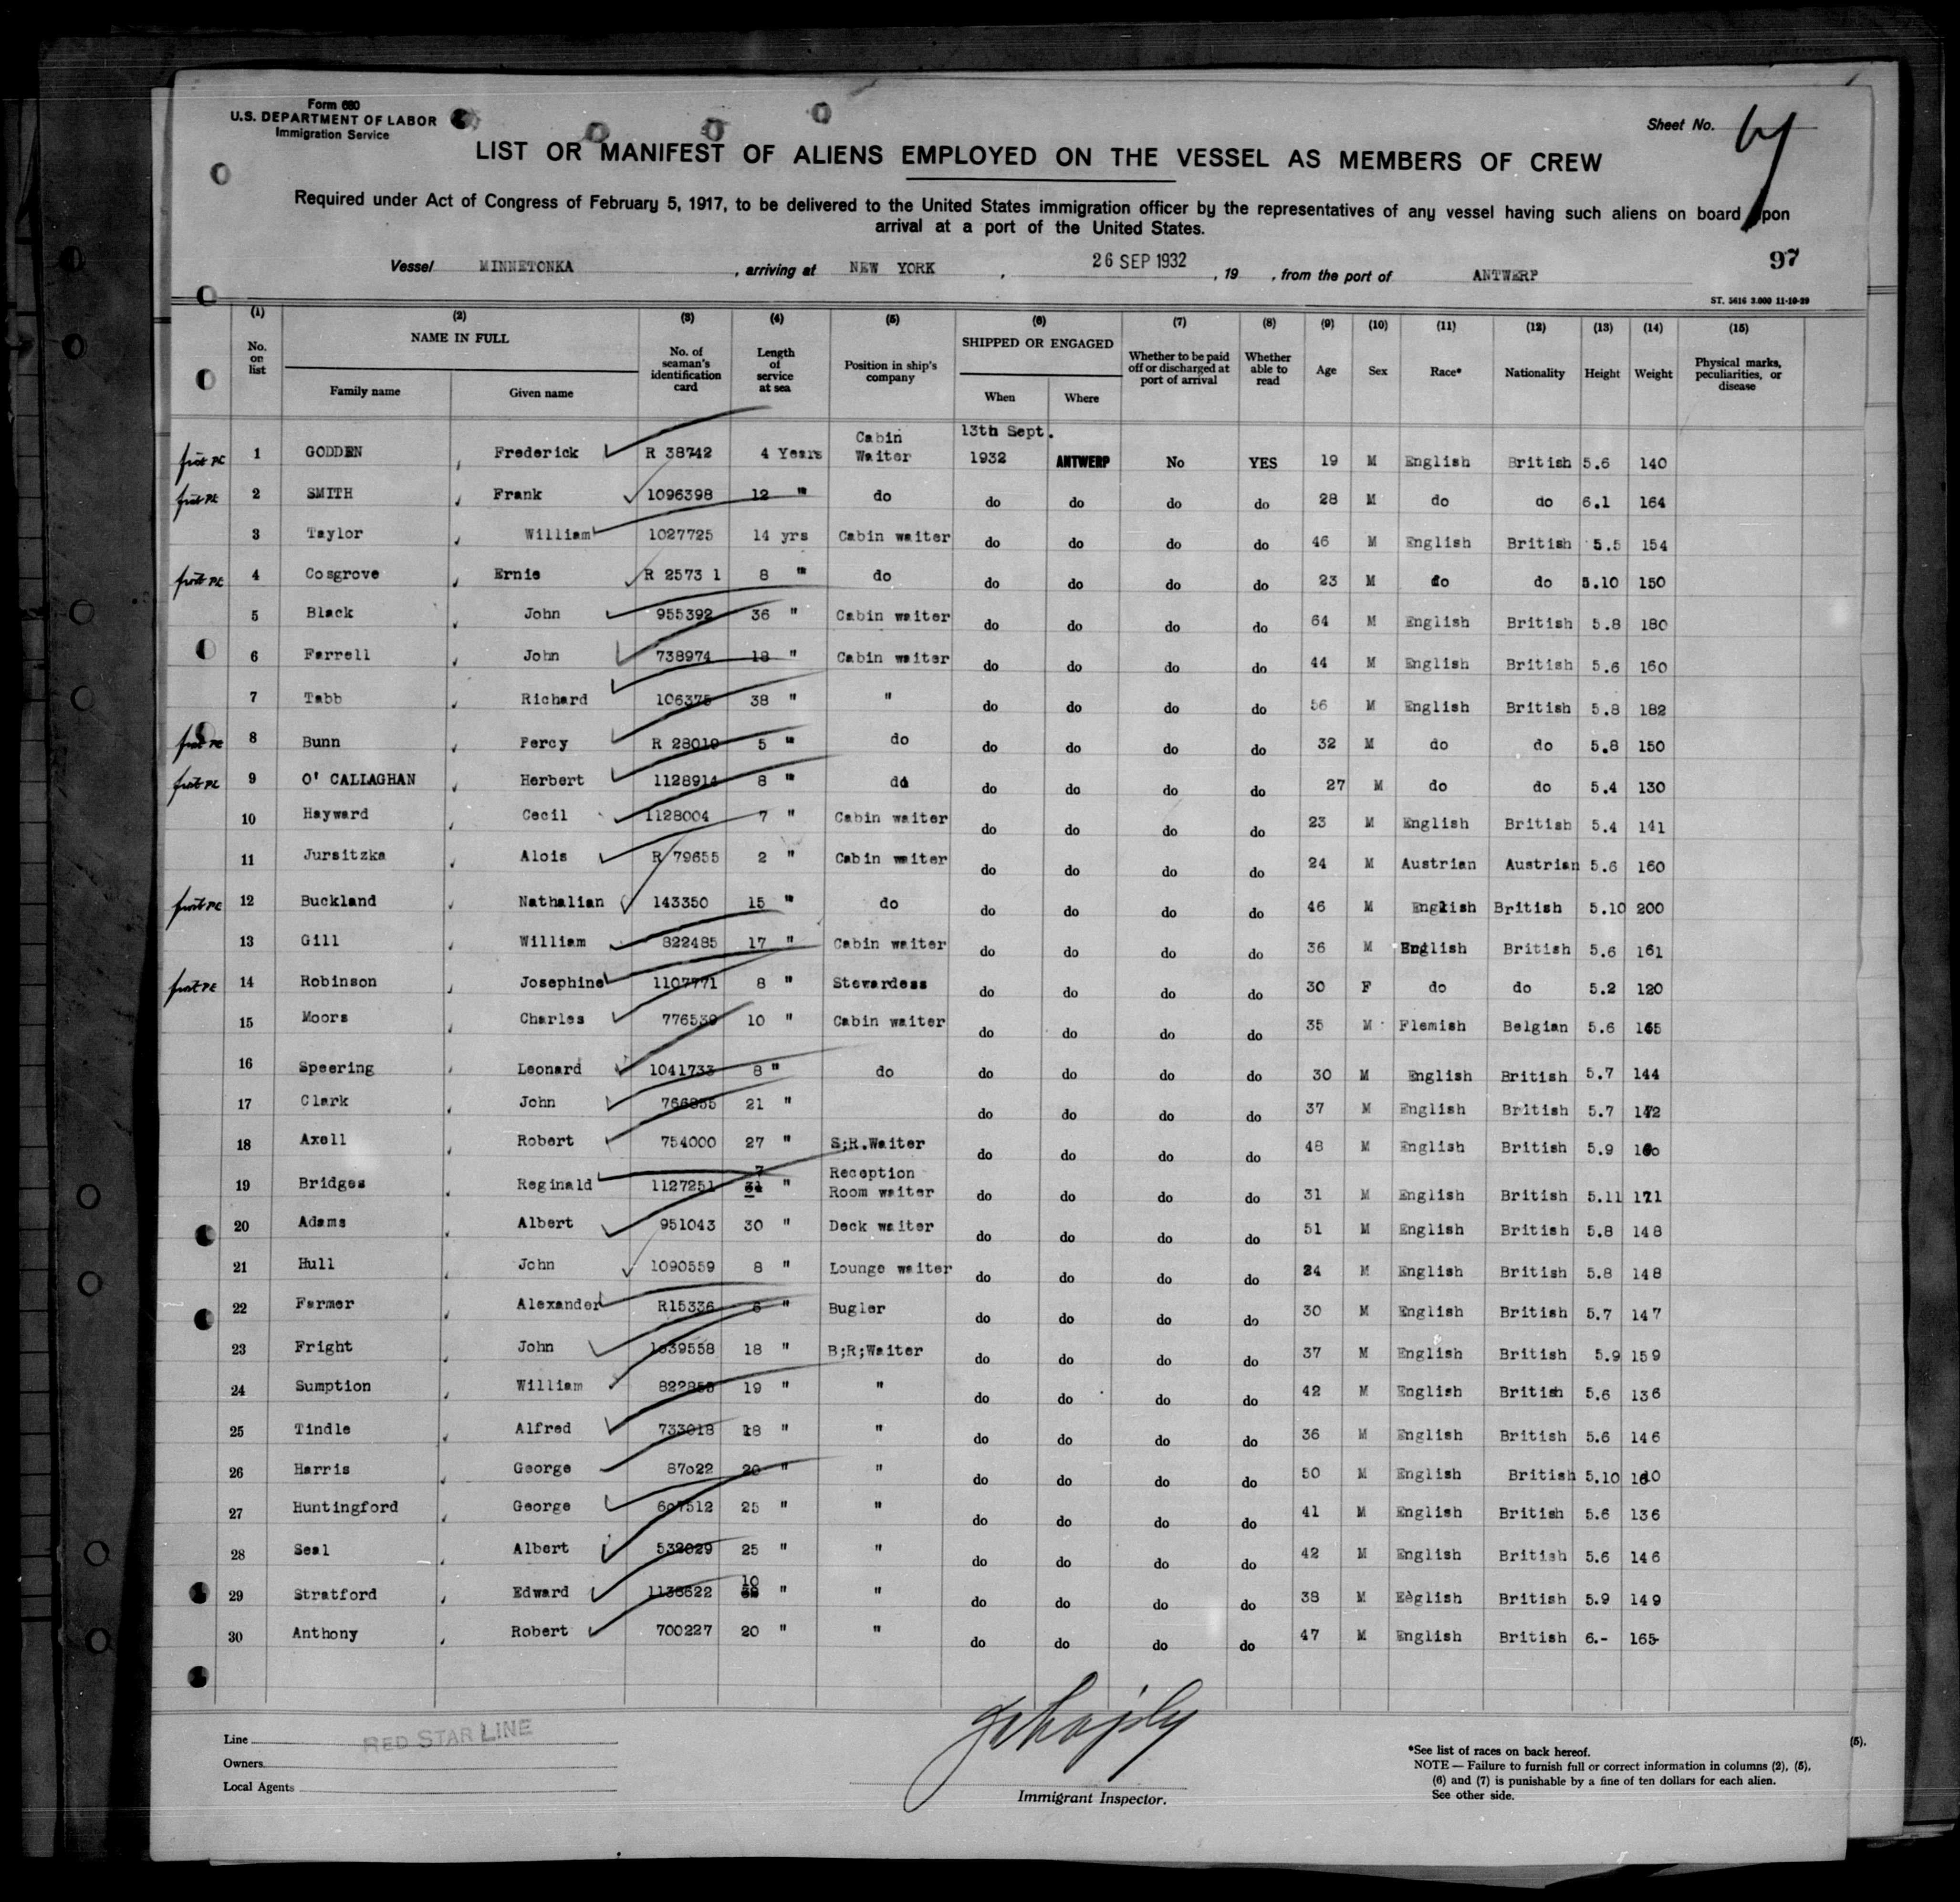 Form 680
U.S. DEPARTMENT OF LABOR
Immigration Service
Sheet No.
LIST OR MANIFEST OF ALIENS EMPLOYED ON THE VESSEL AS MEMBERS OF CREW
Required under Act of Congress of February 5, 1917, to be delivered to the United States immigration officer by the representatives of any vessel having such aliens on board upon
arrival at a port of the United States.
97
Vessel MINNETONKA , arriving at NEW YORK , 26 SEP 1932 , 19 , from the port of ANTWERP
ST. 5616 3.000 11-10-29
(1) (2) (3) (4) (5) (6) (7) (8) (9) (10) (11) (12) (13) (14) (15)
No. on list NAME IN FULL Family name Given name No. of seaman's identification card Length of service at sea Position in ship's company SHIPPED OR ENGAGED When Where Whether to be paid off or discharged at port of arrival Whether able to read Age Sex Race* Nationality Height Weight Physical marks, peculiarities, or disease
1 GODDEN , Frederick R 38742 4 Years Cabin Waiter 13th Sept. 1932 ANTWERP No YES 19 M English British 5.6 140
2 SMITH , Frank 1096398 12 " do do do do do 28 M do do 6.1 164
3 Taylor , William 1027725 14 yrs Cabin waiter do do do do 46 M English British 5.5 154
4 Cosgrove , Ernie R 2573 1 8 " do do do do do 23 M do do 5.10 150
5 Black , John 955392 36 " Cabin waiter do do do do 64 M English British 5.8 180
6 Farrell , John 738974 18 " Cabin waiter do do do do 44 M English British 5.6 160
7 Tabb , Richard 106375 38 " " do do do do 56 M English British 5.8 182
8 Bunn , Percy R 28019 5 " do do do do do 32 M do do 5.8 150
9 O' CALLAGHAN , Herbert 1128914 8 " do do do do do 27 M do do 5.4 130
10 Hayward , Cecil 1128004 7 " Cabin waiter do do do do 23 M English British 5.4 141
11 Jursitzka , Alois R 79655 2 " Cabin waiter do do do do 24 M Austrian Austrian 5.6 160
12 Buckland , Nathalian 143350 15 " do do do do do 46 M English British 5.10 200
13 Gill , William 822485 17 " Cabin waiter do do do do 36 M English British 5.6 161
14 Robinson , Josephine 1107771 8 " Stewardess do do do do 30 F do do 5.2 120
15 Moors , Charles 776539 10 " Cabin waiter do do do do 35 M Flemish Belgian 5.6 165
16 Speering , Leonard 1041733 8 " do do do do do 30 M English British 5.7 144
17 Clark , John 21 " do do do do 37 M English British 5.7 142
18 Axell , Robert 754000 27 " S;R.Waiter do do do do 48 M English British 5.9
19 Bridges , Reginald 1127251 7 " Reception Room waiter do do do do 31 M English British 5.11 171
20 Adams , Albert 951043 30 " Deck waiter do do do do 51 M English British 5.8 148
21 Hull , John 1090559 8 " Lounge waiter do do do do 24 M English British 5.8 148
22 Farmer , Alexander R15336 6 " Bugler do do do do 30 M English British 5.7 147
23 Fright , John 1039558 18 " B;R;Waiter do do do do 37 M English British 5.9 159
24 Sumption , William 19 " " do do do do 42 M English British 5.6 136
25 Tindle , Alfred 733018 18 " " do do do do 36 M English British 5.6 146
26 Harris , George 87022 20 " " do do do do 50 M English British 5.10
27 Huntingford , George 607512 25 " " do do do do 41 M English British 5.6 136
28 Seal , Albert 532029 25 " " do do do do 42 M English British 5.6 146
29 Stratford , Edward 10 " " do do do do 38 M Eèglish British 5.9 149
30 Anthony , Robert 700227 20 " " do do do do 47 M English British 6.- 165
Line RED STAR LINE
Owners
Local Agents
Immigrant Inspector.
*See list of races on back hereof.
NOTE — Failure to furnish full or correct information in columns (2), (5),
(6) and (7) is punishable by a fine of ten dollars for each alien.
See other side.
(5),